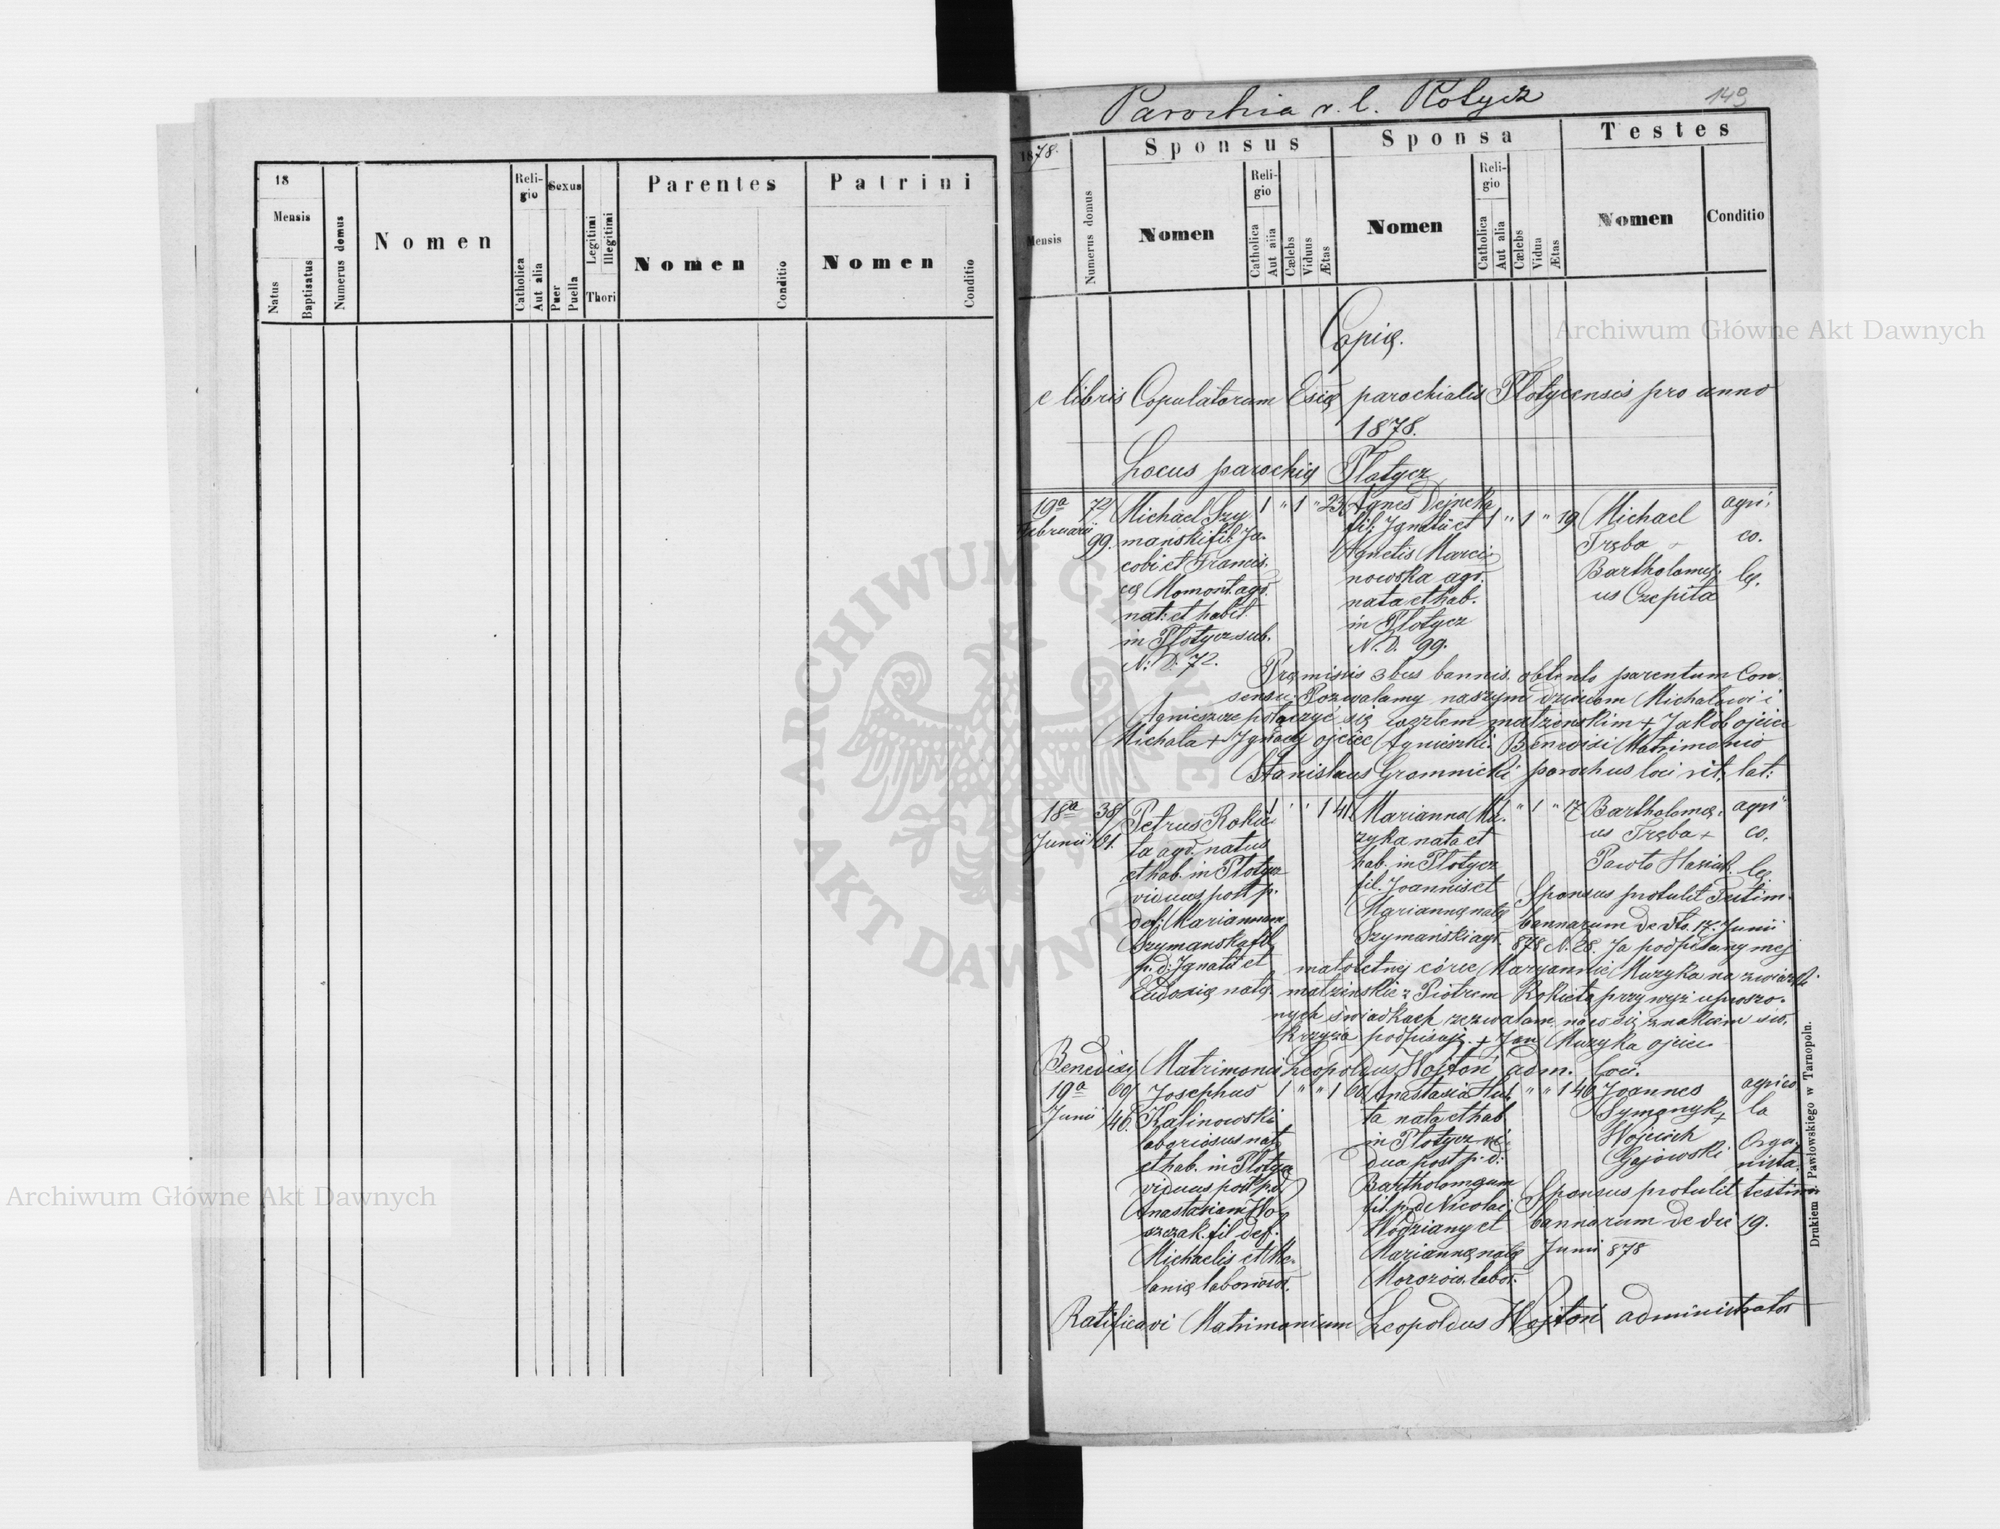 18
Mensis
Natus
Baptisatus
Numerus domus
Nomen
Religio
Catholica
Aut alia
Sexus
Puer
Puella
Legitimi
Illegitimi
Thori
Parentes
Nomen
Conditio
Patrini
Nomen
Conditio
Parochia r. l. Płotycz
149
1878.
Mensis
Numerus domus
Sponsus
Nomen
Religio
Catholica
Aut alia
Cælebs
Viduus
Ætas
Sponsa
Nomen
Religio
Catholica
Aut alia
Cælebs
Vidua
Ætas
Testes
Nomen
Conditio
Copię.
e libris Copulatorum Eclię parochialis Płotycensis pro anno
1878.
Locus parochię Płotycz
19ª
Februarii
72/
99.
Michael Szy
manski fil. Ja-
cobi et Francis.
cę Momont. agr.
nat: et habit
in Płotycz sub.
N: D. 72.
1 " 1 " 23
Agnes Dejneka
fil: Ignatii et
Agnetis Marci
nowska agr.
nata et hab.
in Płotycz
N. D. 99.
1 " 1 " 19
Michael
Tręba +
Bartholomę-
us Czepita
agri-
co.
lę.
Pręmissis 3bus bannis, obtento parentum Con-
sensu: Pozwalamy naszym dzieciom Michałowi i
Agnieszce połączyć się węzłem małżeńskim + Jakób ojciec
Michała + Ignacy ojciec Agnieszki. Benedixi Matrimonio
Stanislaus Gromnicki parochus loci rit. lat:
18ª
Junii
38/
61.
Petrus Rokie
ta agr. natus
et hab. in Płotycz
viduus post p.
def: Mariannam
Szymanska fil.
p. d: Ignatii et
Eudoxię natę.
1 " " 1 41
Marianna Mu-
zyka nata et
hab. in Płotycz
fil. Joannis et
Mariannę natę
Szymański agr.
1 " 1 " 17
Bartholomę-
us Tręba +
Pawło
agri
co.
lę
Sponsus protulit Testim.
bannorum de dto. 17. Junii
878 N. 28. Ja podpisany mej
małoletnej córce Maryannie Muzyka na związki
małżeńskie z Piotrem Rokieta przy wyż uproszo-
nych świadkach zezwalam, na co się znakiem św.
krzyża podpisuję. + Jan Muzyka ojciec
Benedixi Matrimonio Leopoldus Wojtoń adm. loci.
19ª
Junii
69/
46.
Josephus
Kalinowski
laboriosus nat.
et hab. in Płotycz
viduus post p. d.
Anastasiam Wo-
szczak. fil def.
Michaelis et Me-
lanię laborios.
1 " " 1 60
Anastasia Hu-
ta nata et hab
in Płotycz vi-
dua post p. d:
Bartholomęum
fil. p. d. Nicolai
Wodziany et
Mariannę natę
Morozow. labor.
1 " " 1 46
Joannes
Symonyk +
Wojciech
Gajowski
agrico
la
Orga-
nista.
Sponsus protulit testim
bannorum de die 19.
Junii 878
Ratificavi Matrimonium Leopoldus Wojtoń administrator
Drukiem J. Pawłowskiego w Tarnopolu.
Archiwum Główne Akt Dawnych
Archiwum Główne Akt Dawnych
ARCHIWUM GŁÓWNE AKT DAWNYCH